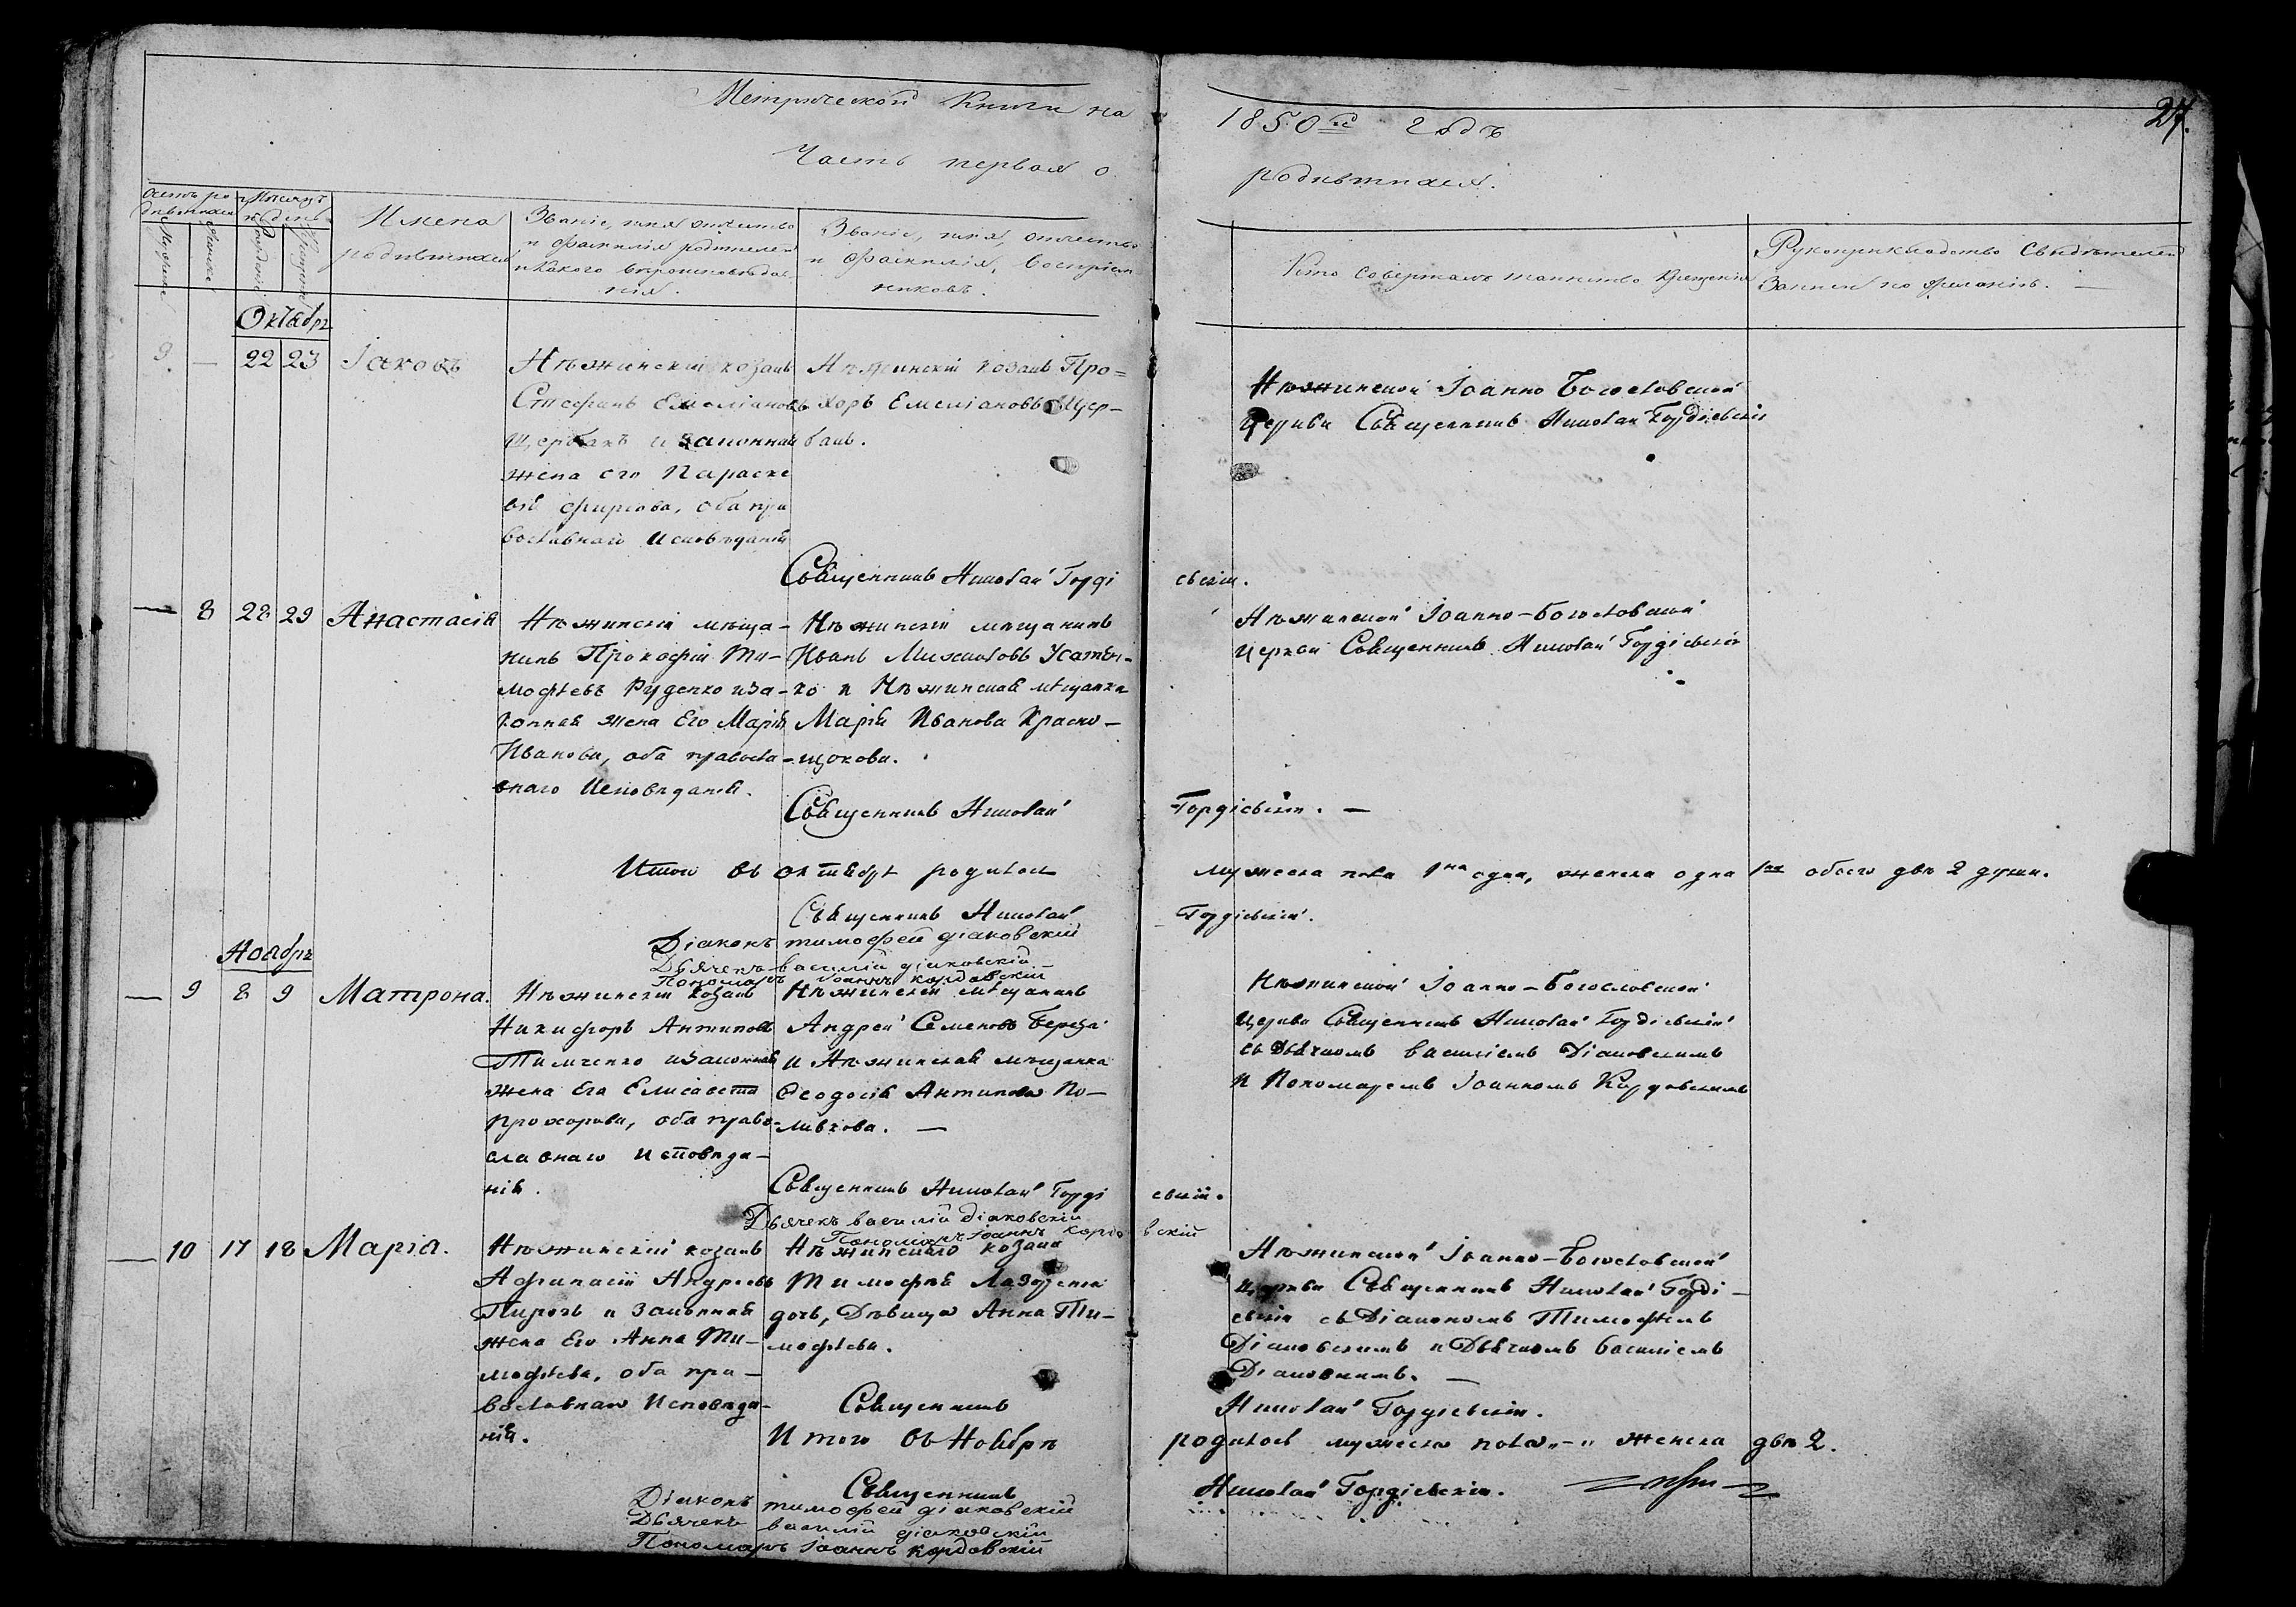 Метрической Книги на 1850й годъ
27.
Часть первая о родившихся.
Мужеска
Женска
Рожденія
Крещенія
Имена
родившихся
Званіе, имя отчество
и фамилія родителей
и какого вѣроисповѣда
нія.
Званіе, имя, отчество
и фамилія, воспріем
никовъ.
Кто совершалъ таинство крещенія
Рукоприкладство свидѣтелей
записи по желанію. —
Октябрь
9. — 22 23 Іаковъ
Нѣжинскій козакъ
Стефанъ Емеліановъ
Щербакъ и законная
жена его Параске
вія Фирсова, оба пра
вославнаго исповѣданія
Нѣжинскій козакъ Про=
хоръ Емеліановъ Щер-
бакъ.
Нѣжинской Іоанно Богословской
Церкви Священникъ Николай Гордіевскій
Священникъ Николай Гордіевскій.
— 8 28 29 Анастасія
Нѣжинскій мѣща-
нинъ Прокофій Ти-
мофѣевъ Руденко и за-
конная жена Его Марія
Иванова, оба правосла-
внаго Исповѣданія.
Нѣжинскій мѣщанинъ
Иванъ Михайловъ
и Нѣжинская мѣщанка
Марія Иванова Красно-
щокова.
Нѣжинской Іоанно-Богословской
Церкви Священникъ Николай Гордіевскій
Священникъ Николай Гордіевскій. —
Итого въ октябрѣ родилось мужеска пола 1на одна, женска одна 1на обоего двѣ 2 души.
Священникъ Николай Гордіевскій.
Діаконъ тимофей діаковскій
Дьячекъ василій діаковскій
Пономарь Іоаннъ кордовскій
Ноябрь
— 9 8 9 Матрона.
Нѣжинскій козакъ
Никифоръ Антиповъ
Тимченко и законная
жена Его Елисавета
Прохорова, оба право-
славнаго Исповѣда-
нія.
Нѣжинскій мѣщанинъ
Андрей Семеновъ Береза
и Нѣжинская мѣщанка
Ѳеодосія Антипова По-
ливкова. —
Нѣжинской Іоанно-Богословской
Церкви Священникъ Николай Гордіевскій
съ Дьячкомъ Василіемъ Діаковскимъ
и Пономаремъ Іоанномъ Кордовскимъ
Священникъ Николай Гордіевскій.
Дьячекъ василій діаковскій
Пономарь Іоаннъ Кордовскій
— 10 17 18 Марія.
Нѣжинскій козакъ
Афанасій Андреевъ
Пирогъ и законная
жена Его Анна Ти-
мофѣева, оба пра-
вославнаго Исповѣда-
нія.
Нѣжинскаго козака
Тимофѣя Лазоренка
дочь, Дѣвица Анна Ти-
мофѣева.
Нѣжинской Іоанно-Богословской
Церкви Священникъ Николай Горді-
евскій съ Діакономъ Тимофѣемъ
Діаковскимъ и Дьячкомъ Василіемъ
Діаковскимъ. —
Священникъ Николай Гордіевскій.
Итого въ Ноябрѣ родилось мужеска пола „-„ женска двѣ 2.
Священникъ Николай Гордіевскій.
Діаконъ тимофей діаковскій
Дьячекъ василій діаковскій
Пономарь Іоаннъ кордовскій